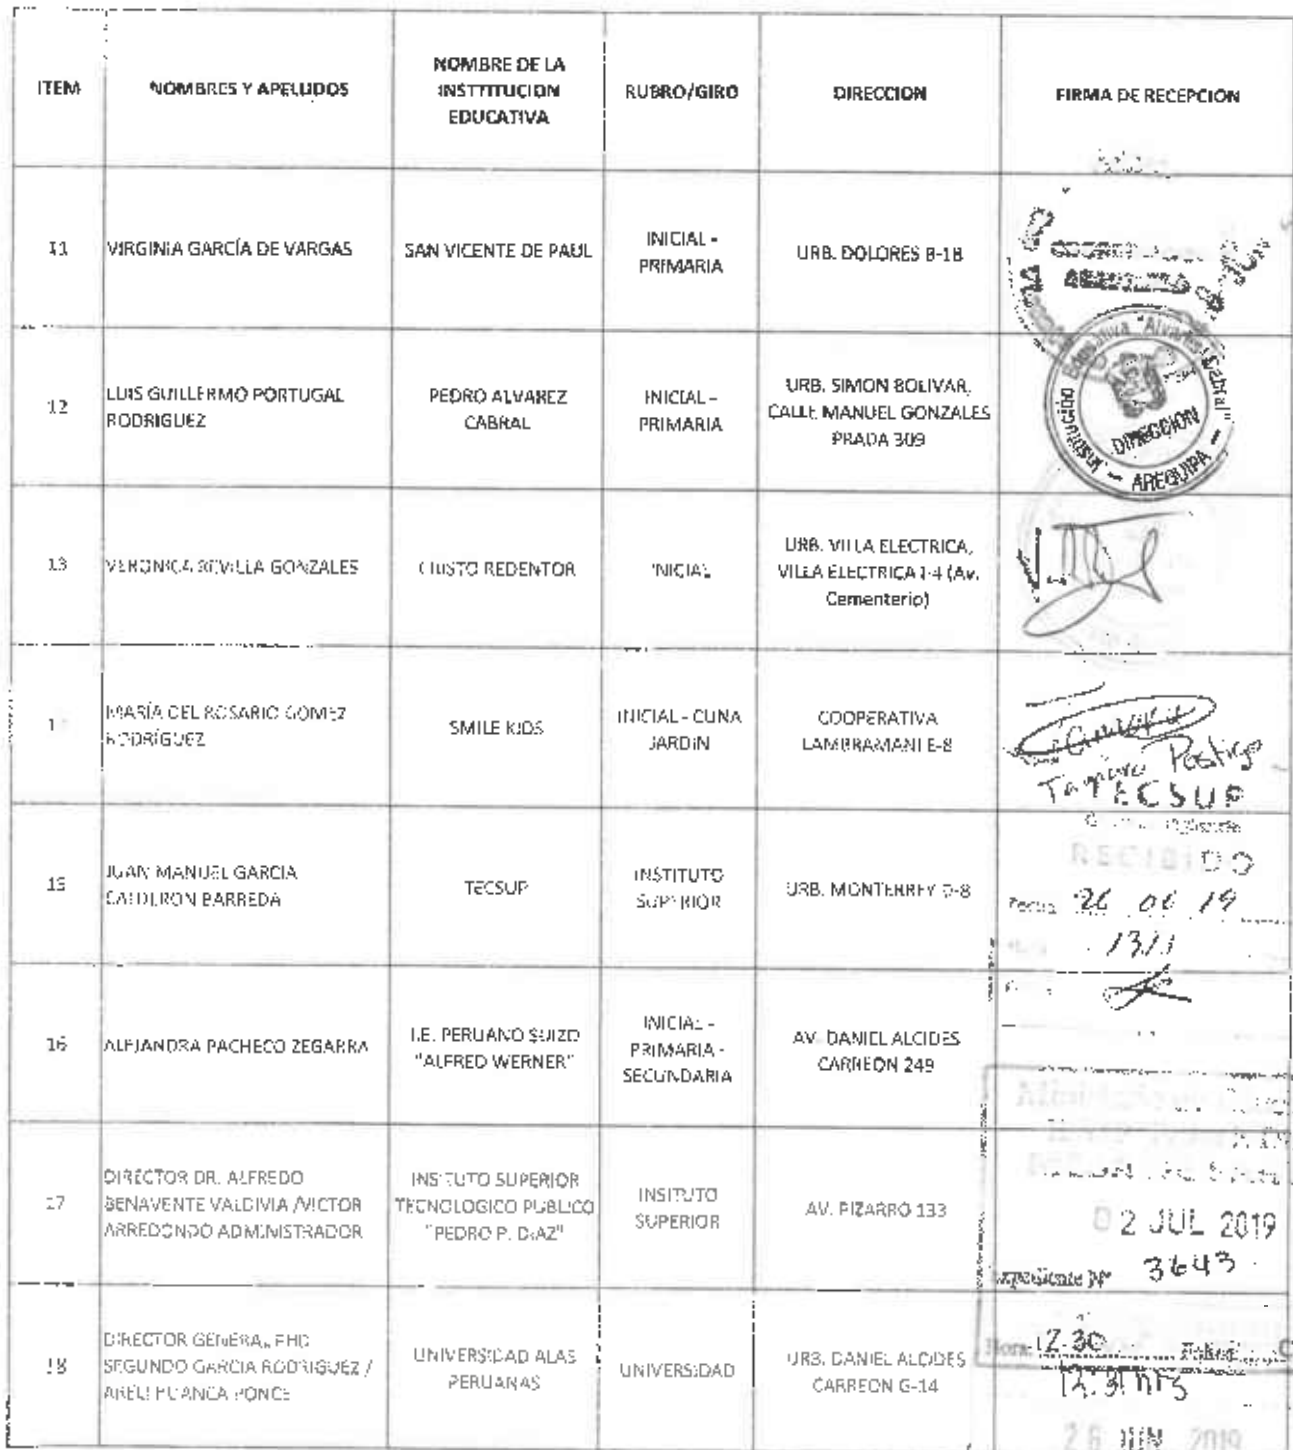 ITEM
NOMBRES Y APELLIDOS
NOMBRE DE LA
INSTITUCION
EDUCATIVA
RUBRO/GIRO
DIRECCION
FIRMA DE RECEPCION
11
VIRGINIA GARCÍA DE VARGAS
SAN VICENTE DE PAUL
INICIAL -
PRIMARIA
URB. DOLORES B-18
12
LUIS GUILLERMO PORTUGAL
RODRIGUEZ
PEDRO ALVAREZ
CABRAL
INICIAL -
PRIMARIA
URB. SIMON BOLIVAR,
CALLE MANUEL GONZALES
PRADA 309
Institución Educativa "Alvarez Cabral"
DIRECCION
- AREQUIPA -
13
VERONICA REVILLA GONZALES
CRISTO REDENTOR
INICIAL
URB. VILLA ELECTRICA,
VILLA ELECTRICA I-4 (Av.
Cementerio)
MARÍA DEL ROSARIO GOMEZ
RODRÍGUEZ
SMILE KIDS
INICIAL - CUNA
JARDIN
COOPERATIVA
LAMBRAMANI E-8
Postigo
15
JUAN MANUEL GARCIA
CALDERON BARREDA
TECSUP
INSTITUTO
SUPERIOR
URB. MONTERREY D-8
TECSUP
RECIBIDO
Fecha 26 06 19
16
ALEJANDRA PACHECO ZEGARRA
I.E. PERUANO SUIZO
"ALFRED WERNER"
INICIAL -
PRIMARIA -
SECUNDARIA
AV. DANIEL ALCIDES
CARREON 249
17
DIRECTOR DR. ALFREDO
BENAVENTE VALDIVIA /VICTOR
ARREDONDO ADMINISTRADOR
INSITUTO SUPERIOR
TECNOLOGICO PUBLICO
"PEDRO P. DIAZ"
INSITUTO
SUPERIOR
AV. PIZARRO 133
02 JUL 2019
Expediente Nº 3643
Hora: 12.30
18
DIRECTOR GENERAL PHD
SEGUNDO GARCIA RODRIGUEZ /
ARELI HUANCA PONCE
UNIVERSIDAD ALAS
PERUANAS
UNIVERSIDAD
URB. DANIEL ALCIDES
CARREON G-14
12:31 hrs
26 JUN 2019